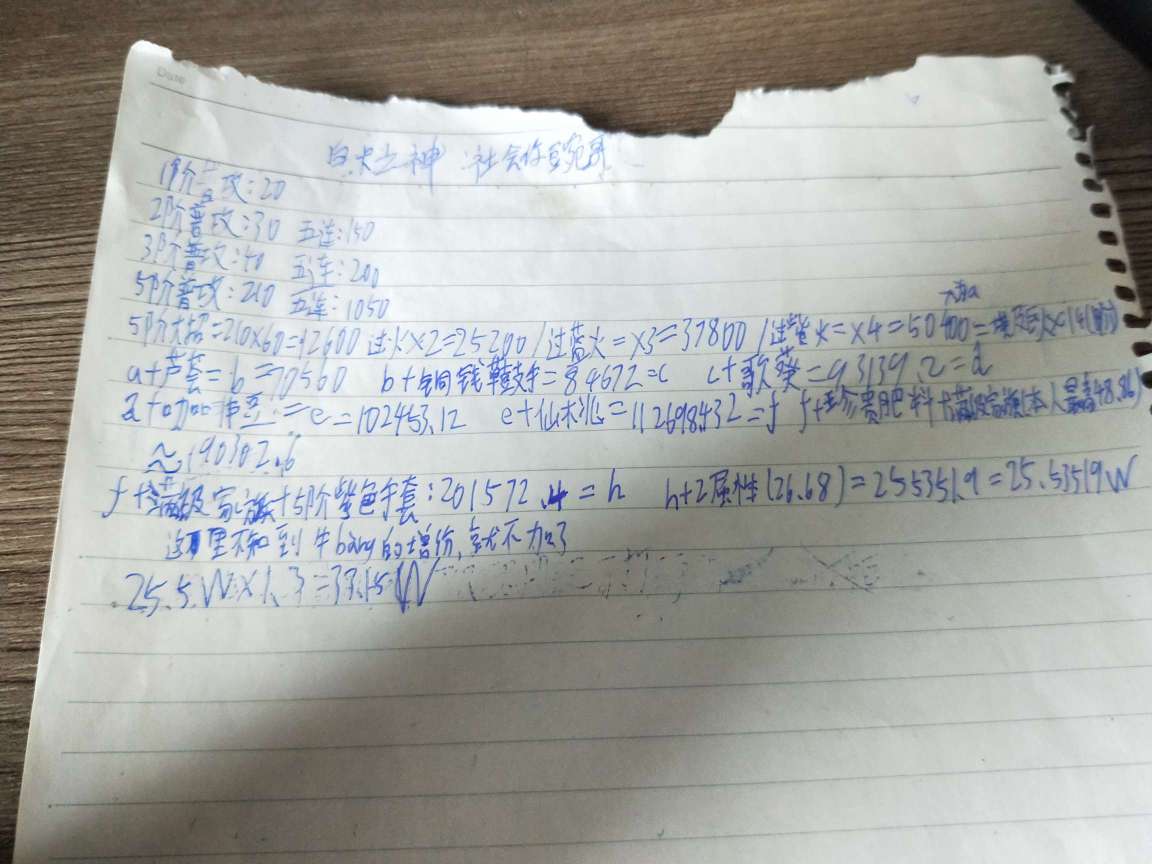 Date
之神 社会
1阶普攻:20
2阶普攻:30 五连:150
3阶普攻:40 五连:200
5阶普攻:210 五连:1050
5阶大招=210×60=12600 过火×2=25200/过蓝火=×3=37800/过紫火=×4=50400=
a+芦荟=b=70560 b+铜钱鼓手=84672=c c+歌葵=93139.2=d
d+咖啡豆=e=102453.12 e+仙水兆=112698.432=f f+至珍贵肥料+满级家族(本人最高48.86)
≈190302.6
f+满级家族+5阶紫色手套:201572.4=h h+2属性(26.68)=255351.9=25.53519W
这里不知到牛bang的增伤,就不加了
25.5W×1.3=33.15W